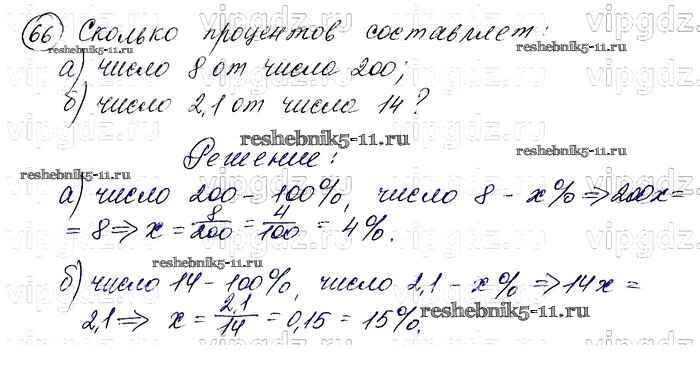 66 Сколько процентов составляет:
а) число 8 от числа 200;
б) число 2,1 от числа 14?
Решение:
а) число 200 - 100%, число 8 - x% ⇒ 200x =
= 8 ⇒ x = 8/200 = 4/100 = 4%.
б) число 14 - 100%, число 2,1 - x% ⇒ 14x =
2,1 ⇒ x = 2,1/14 = 0,15 = 15%.
reshebnik5-11.ru
reshebnik5-11.ru
reshebnik5-11.ru
reshebnik5-11.ru
reshebnik5-11.ru
reshebnik5-11.ru
reshebnik5-11.ru
vipgdz.ru